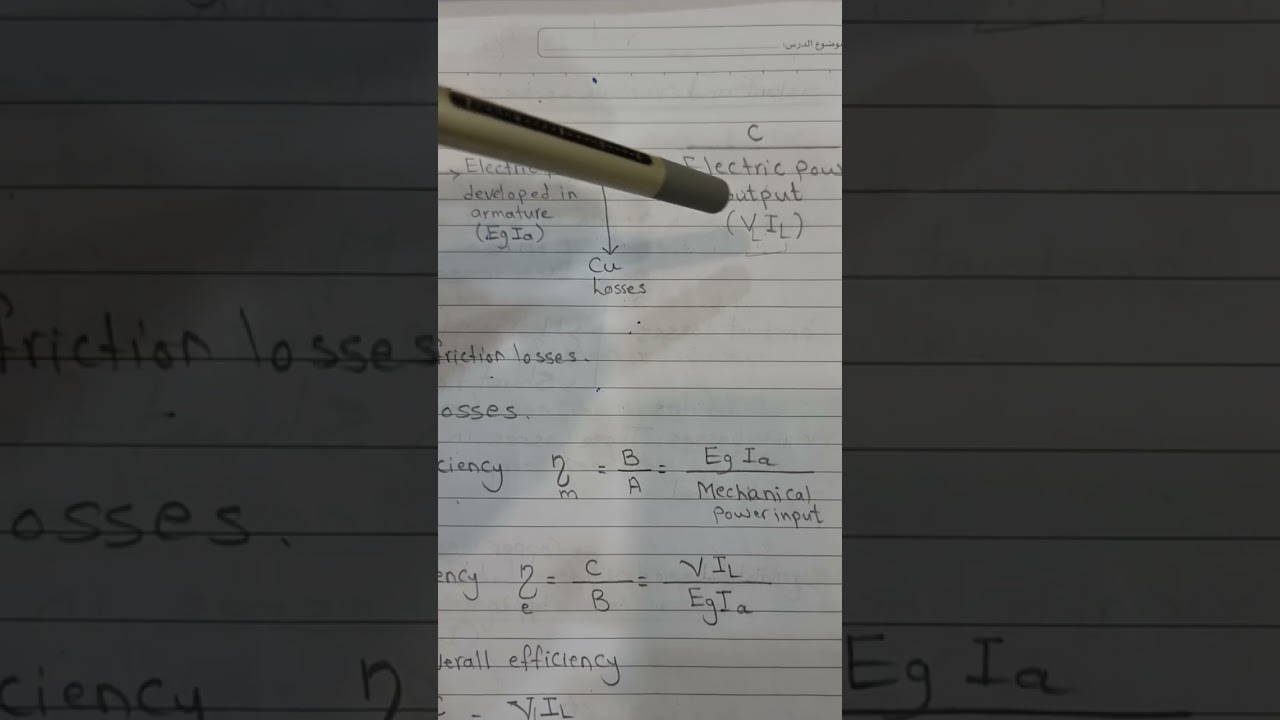 موضوع الدرس:
C
Electric
developed in
armature
(EgIa)
Electric pow
output
(VL IL)
Cu
Losses
friction losses.
osses.
ciency ηm = B/A = Eg Ia / Mechanical Power input
ency ηe = C/B = VIL / EgIa
erall efficiency
C = VIL